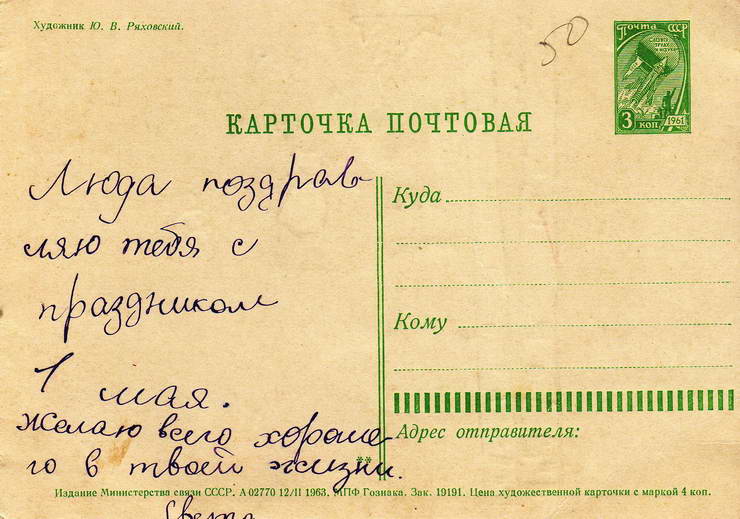 Художник Ю. В. Ряховский.
50
ПОЧТА СССР
3 КОП
1961
КАРТОЧКА ПОЧТОВАЯ
Люда поздрав-
ляю тебя с
праздником
1 мая.
желаю всего хороше-
го в твоей жизни.
Света
Куда
Кому
Адрес отправителя:
**
Издание Министерства связи СССР. А 02770 12/II 1963. МПФ Гознака. Зак. 19191. Цена художественной карточки с маркой 4 коп.